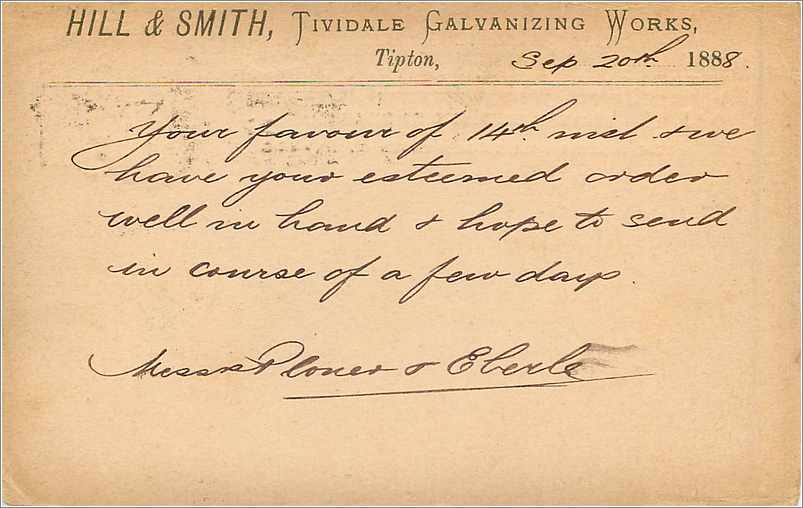 HILL & SMITH, TIVIDALE GALVANIZING WORKS,
Tipton, Sep 20th 1888.
Your favour of 14th inst & we
have your esteemed order
well in hand & hope to send
in course of a few days.
Messrs Ploner & Eberle